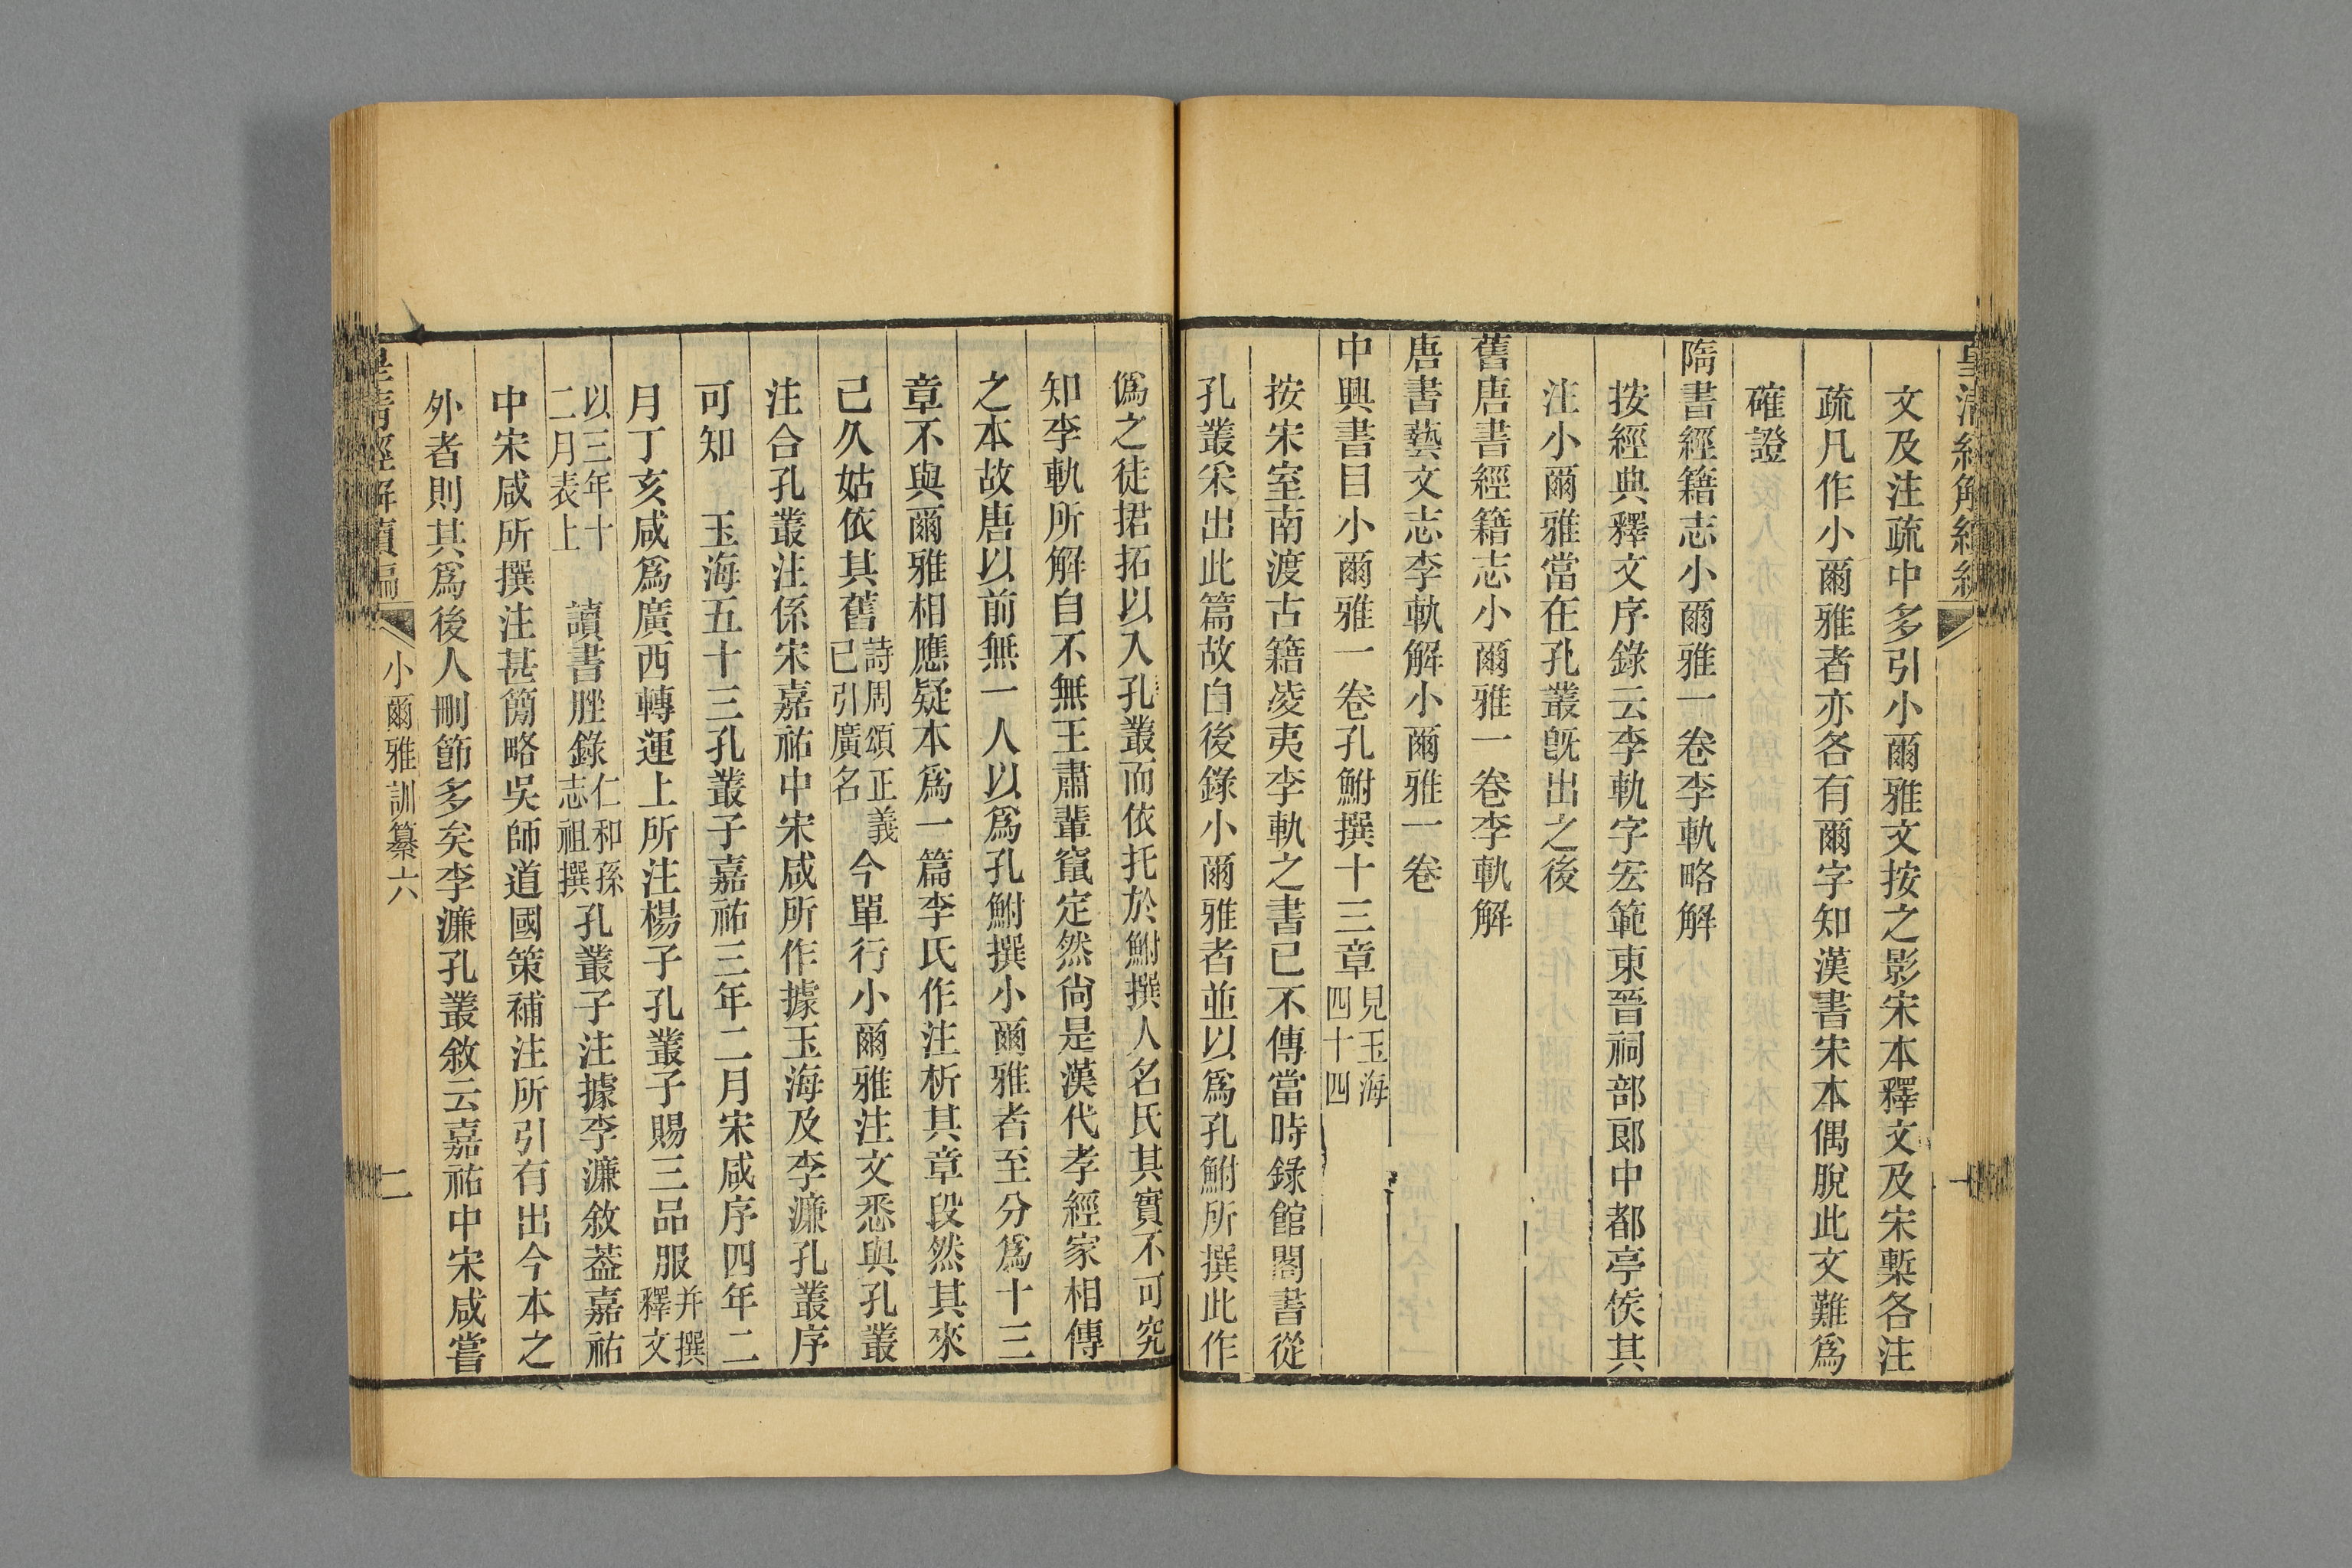 文及注疏中多引小爾雅文按之影宋本釋文及宋槧各注
疏凡作小爾雅者亦各有爾字知漢書宋本偶脫此文難爲
確證
隋書經籍志小爾雅一卷李軌略解
按經典釋文序錄云李軌字宏範東晉祠部郎中都亭侯其
注小爾雅當在孔叢旣出之後
舊唐書經籍志小爾雅一卷李軌解
唐書藝文志李軌解小爾雅一卷
中興書目小爾雅一卷孔鮒撰十三章見玉海四十四
按宋室南渡古籍凌夷李軌之書已不傳當時錄館閣書從
孔叢采出此篇故自後錄小爾雅者並以爲孔鮒所撰此作
僞之徒捃拓以入孔叢而依托於鮒撰人名氏其實不可究
知李軌所解自不無王肅輩竄定然尙是漢代孝經家相傳
之本故唐以前無一人以爲孔鮒撰小爾雅者至分爲十三
章不與爾雅相應疑本爲一篇李氏作注析其章段然其來
已久姑依其舊詩周頌正義已引廣名今單行小爾雅注文悉與孔叢
注合孔叢注係宋嘉祐中宋咸所作據玉海及李濂孔叢序
可知　玉海五十三孔叢子嘉祐三年二月宋咸序四年二
月丁亥咸爲廣西轉運上所注楊子孔叢子賜三品服并撰釋文
以三年十二月表上　讀書脞錄仁和孫志祖撰孔叢子注據李濂敘蓋嘉祐
中宋咸所撰注甚簡略吳師道國策補注所引有出今本之
外者則其爲後人刪節多矣李濂孔叢敘云嘉祐中宋咸嘗
皇清經解續編　小爾雅訓纂六　二